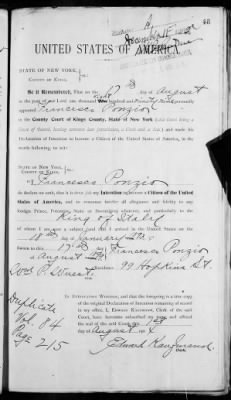 UNITED STATES OF AMERICA.
STATE OF NEW YORK,
COUNTY OF KINGS,
Be it Remembered, That on the 17 day of August
in the year of our Lord one thousand eight hundred and Ninety
appeared Francesco Ponzio
in the County Court of Kings County, State of New York (said Court being a
Court of Record, having common law jurisdiction, a Clerk and a Seal) and made his
Declaration of Intention to become a Citizen of the United States of America, in the
words following to wit:
STATE OF NEW YORK,
COUNTY OF KINGS,
I, Francesco Ponzio
do declare on oath, that it is bona fide my Intention to become a Citizen of the United
States of America, and to renounce forever all allegiance and fidelity to any
foreign Prince, Potentate, State or Sovereignty whatever, and particularly to the
King of Italy
of whom I am now a subject
18th January
Sworn to this 17th day Francesco Ponzio
of August
Residence, 99 Hopkins St.
Duplicate
Vol. 84
Page 215
IN TESTIMONY WHEREOF, and that the foregoing is a true copy
of the original Declaration of Intention remaining of record
in my office, I, EDWARD KAUFMANN, Clerk of the said
Court, have hereunto subscribed my name and affixed
the seal of the said Court
day of August
Edward Kaufmann
Clerk.